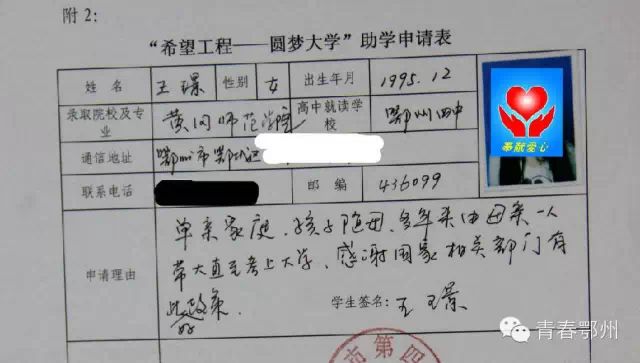 附2：
“希望工程——圆梦大学”助学申请表
姓 名 王璟 性别 女 出生年月 1995.12
录取院校及专业 黄冈师范学院 高中就读学校 鄂州四中
奉献爱心
通信地址 鄂州市鄂城区
联系电话 邮 编 436099
申请理由
单亲家庭、孩子随母、多年来由母亲一人
带大直至考上大学、感谢国家相关部门有
此好政策
学生签名：王璟
市第四
青春鄂州